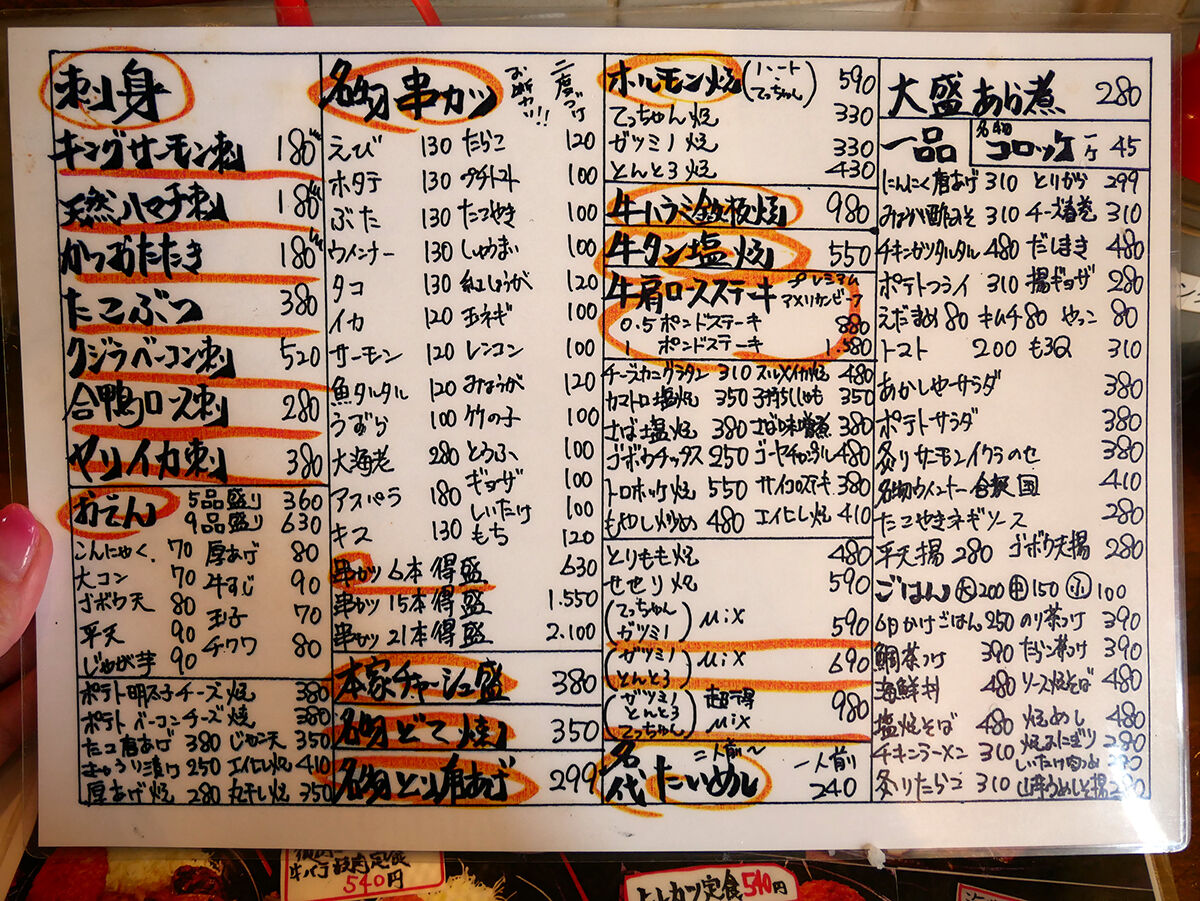 刺身
キングサーモン刺 180
天然ハマチ刺 180
かつおたたき 180
たこぶつ 380
クジラベーコン刺 520
合鴨ロース刺 280
ヤリイカ刺 380
おでん 5品盛り 360
9品盛り 630
こんにゃく 70 厚あげ 80
大コン 70 牛すじ 90
ゴボウ天 80 玉子 70
平天 90 チクワ 80
じゃが芋 90
ポテト明太子チーズ焼 380
ポテトベーコンチーズ焼 380
たこ唐あげ 380 じゃこ天 350
きゅうり漬け 250 エイヒレ焼 410
厚あげ焼 280 丸干し焼 350
名物串カツ 二度づけお断わり!!
えび 130 たらこ 120
ホタテ 130 プチトマト 100
ぶた 130 たこやき 100
ウインナー 130 しゅうまい 100
タコ 130 紅しょうが 120
イカ 120 玉ネギ 100
サーモン 120 レンコン 100
魚タルタル 120 みょうが 120
うずら 100 竹の子 100
大海老 280 とうふ 100
アスパラ 180 ギョーザ 100
しいたけ 100
キス 130 もち 120
串カツ 6本得盛 630
串カツ 15本得盛 1.550
串カツ 21本得盛 2.100
本家チャーシュ盛 380
名物どて焼 350
名物とり唐あげ 299
ホルモン焼(ハートてっちゃん) 590
てっちゃん焼 330
ガツミノ焼 330
とんとろ焼 430
牛ハラミ鉄板焼 980
牛タン塩焼 550
牛肩ロースステーキ プレミアムアメリカンビーフ
0.5 ポンドステーキ 880
1 ポンドステーキ 1.580
チーズカニグラタン 310 スルメイカ焼 480
カマトロ塩焼 350 子持ちししゃも 350
さば塩焼 380 さば味噌煮 380
ゴボウチップス 250 ゴーヤチャンプル 480
トロホッケ焼 550 サイコロステーキ 380
もやし炒め 480 エイヒレ焼 410
とりもも焼 480
せせり焼 590
(てっちゃん ガツミノ) MIX 590
(ガツミノ とんとろ) MIX 690
(ガツミノ とんとろ てっちゃん) 超得MIX 980
名代たいめし 二人前〜 一人前 240
大盛あら煮 280
一品 名物コロッケ 一ケ 45
にんにく唐あげ 310 とりから 299
みそ 310 チーズ春巻 310
チキンカツタルタル 480 だしまき 480
ポテトフライ 310 揚ギョーザ 280
えだまめ 80 キムチ 80 やっこ 80
トマト 200 もろQ 310
あかしやーサラダ 380
ポテトサラダ 380
炙りサーモンイクラのせ 380
名物ウインナー合衆国 410
たこやきネギソース 280
平天揚 280 ゴボウ天揚 280
ごはん 大200 中150 小100
卵かけごはん 250 のり茶づけ 390
鯛茶づけ 390 たらこ茶づけ 390
海鮮丼 480 ソース焼そば 480
塩焼そば 480 焼めし 480
チキンラーメン 310 焼おにぎり 280
炙りたらこ 310
定食
540円
ヒレカツ定食 540円